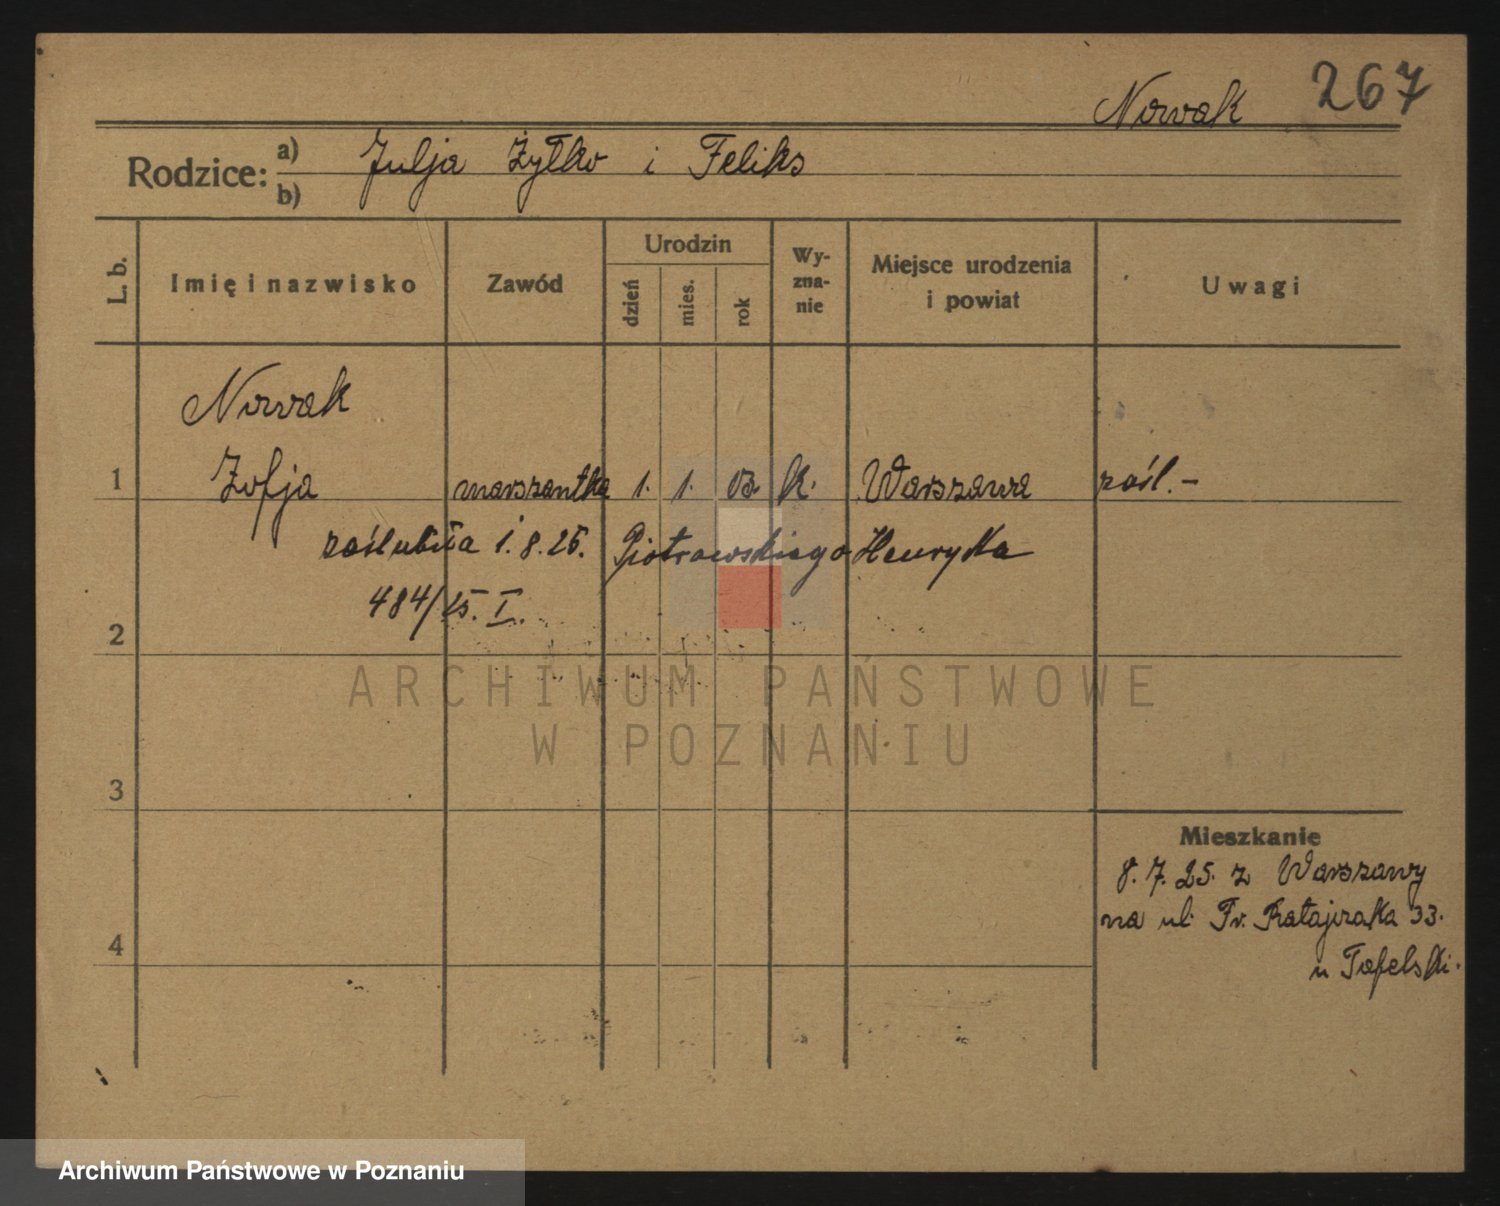 267
Nowak
Rodzice: a) b) Julja Żyłko i Feliks
L. b. Imię i nazwisko Zawód Urodzin dzień mies. rok Wyznanie Miejsce urodzenia i powiat Uwagi
Nowak
1 Zofja marszantka 1. 1. 03. k. Warszawa zaśl.-
zaślubiła 1.8.25. Piotrowskiego Henryka
484/25. I.
2
ARCHIWUM PAŃSTWOWE
W POZNANIU
3
Mieszkanie
8.7.25. z Warszawy
na ul. Fr. Ratajczaka 33.
4
u Tafelski.
Archiwum Państwowe w Poznaniu